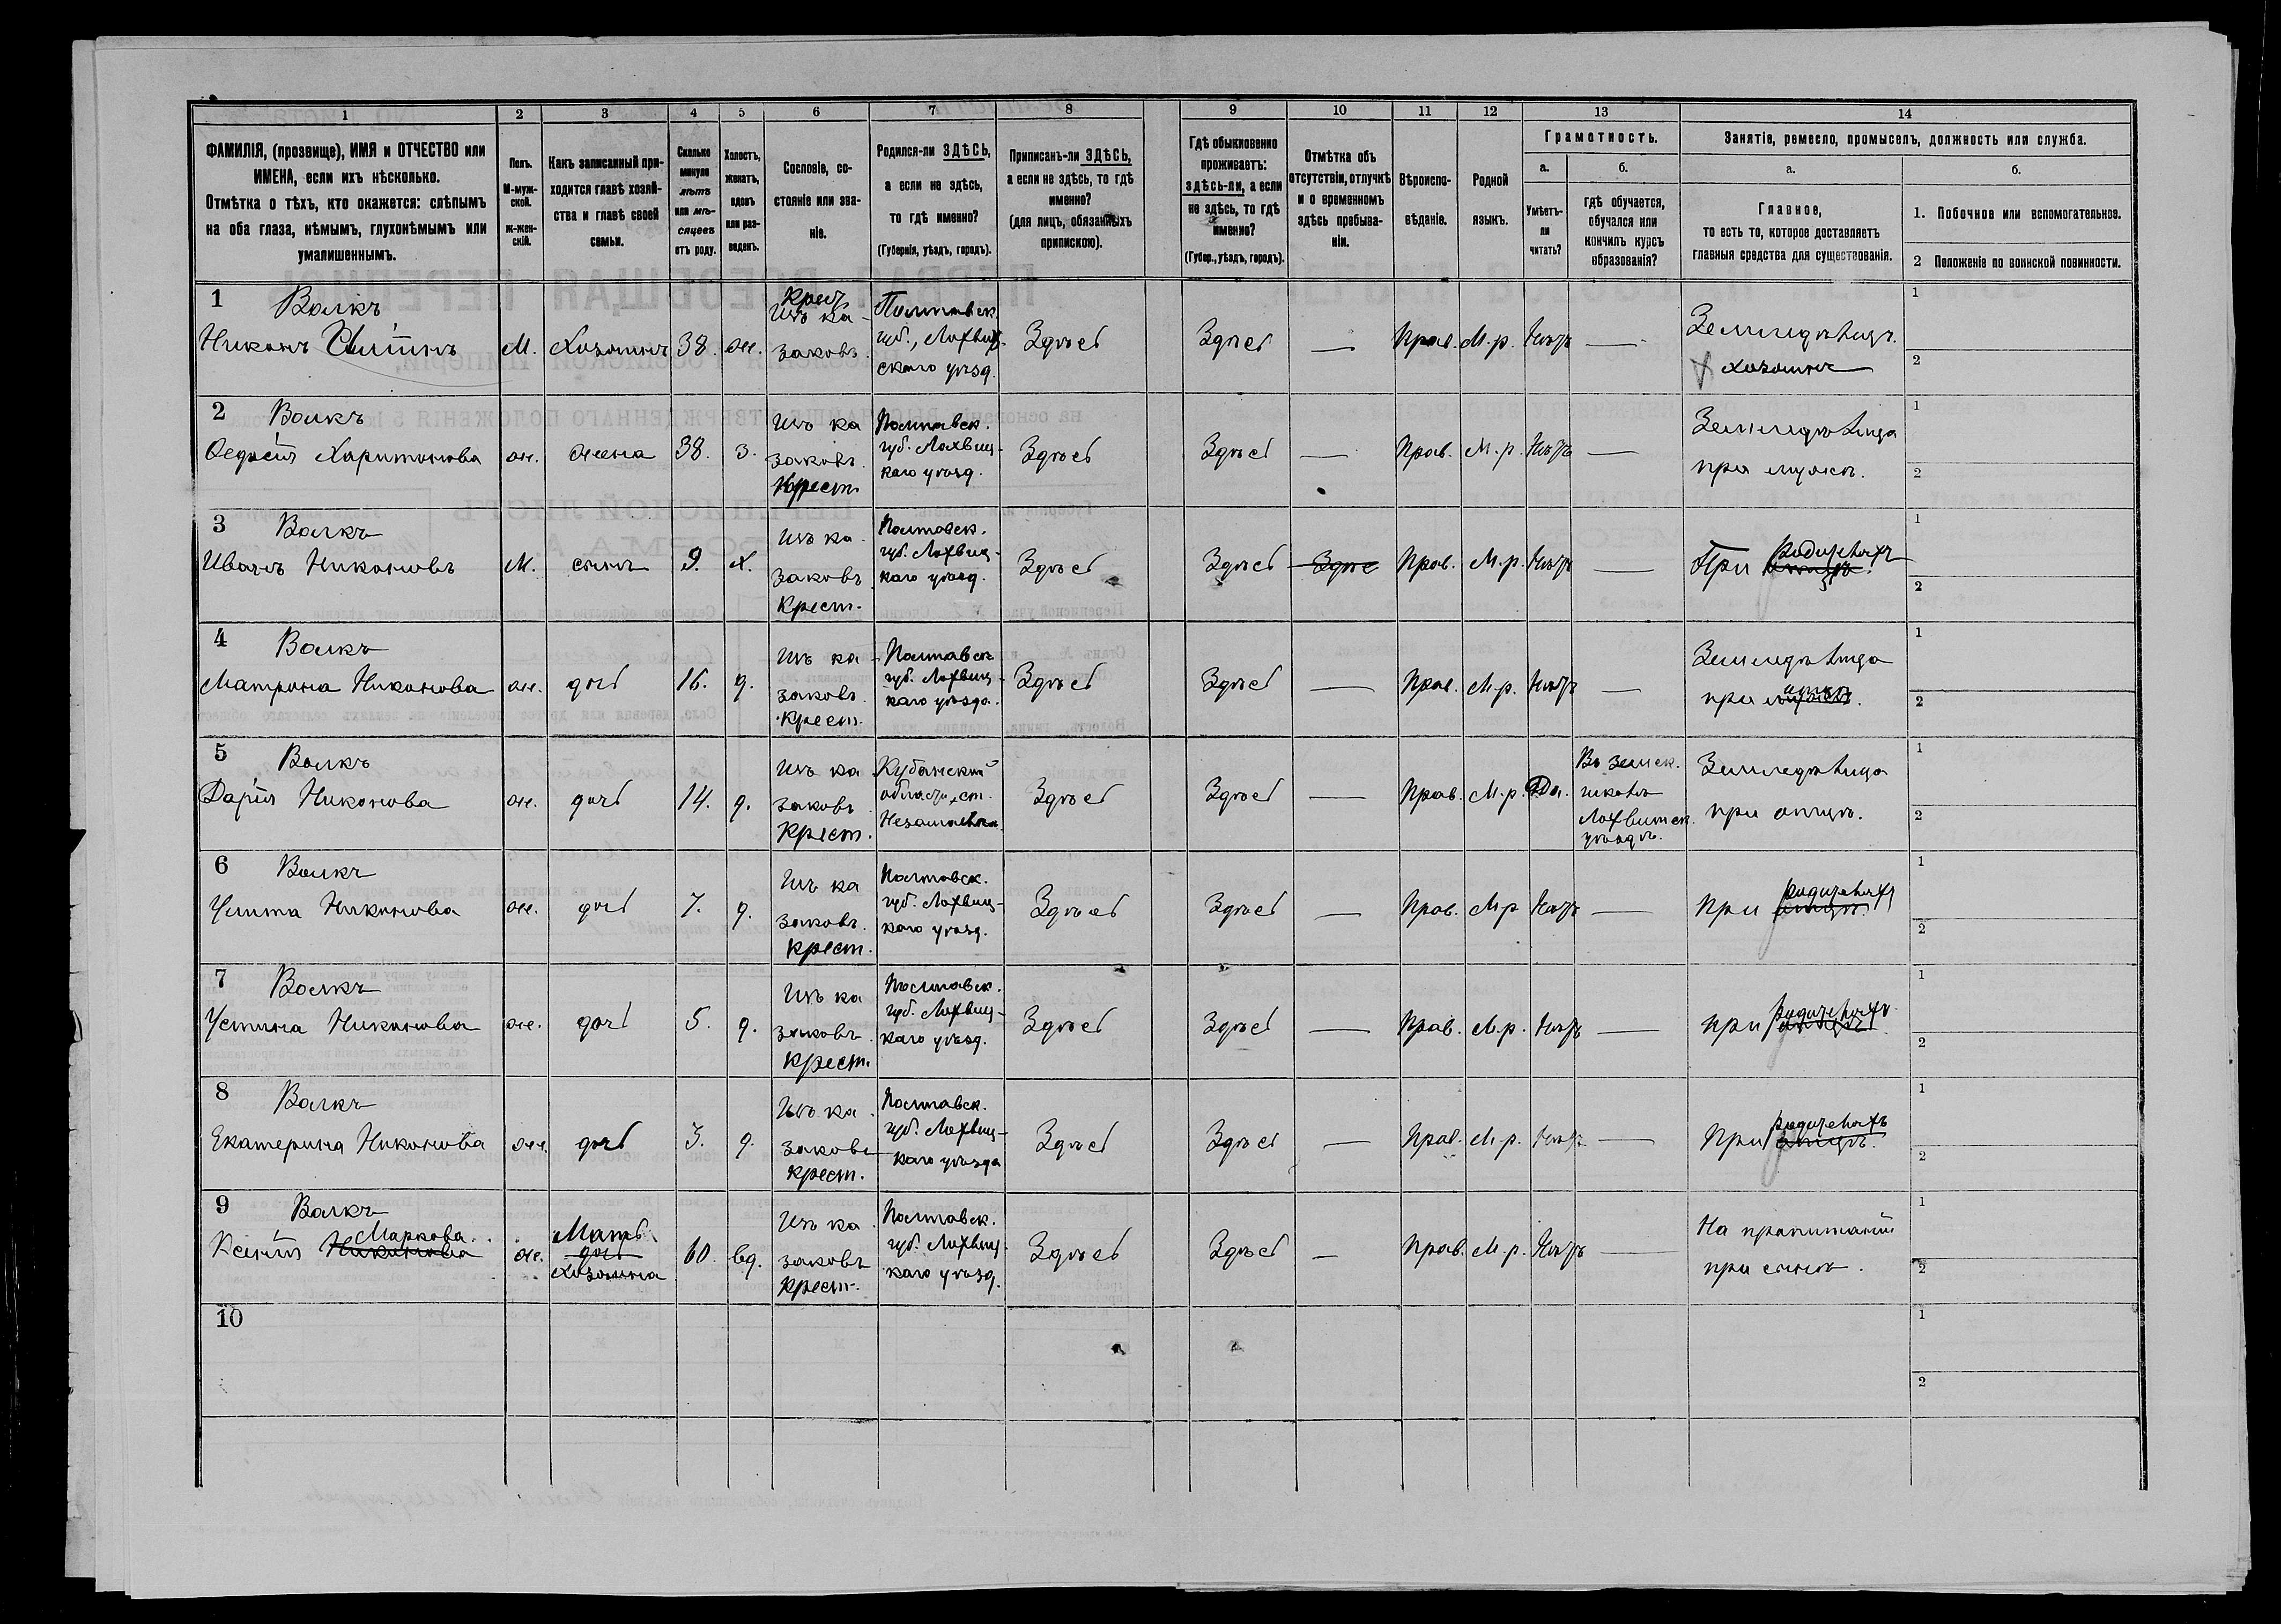 1
2
3
4
5
6
7
8
9
10
11
12
13
14
ФАМИЛІЯ, (прозвище), ИМЯ и ОТЧЕСТВО или
ИМЕНА, если ихъ нѣсколько.
Отмѣтка о тѣхъ, кто окажется: слѣпымъ
на оба глаза, нѣмымъ, глухонѣмымъ или
умалишеннымъ.
Полъ.
М-муж-
ской.
Ж-жен-
скій.
Какъ записанный при-
ходится главѣ хозяй-
ства и главѣ своей
семьи.
Сколько
минуло
лѣтъ
или мѣ-
сяцевъ
отъ роду.
Холостъ,
женатъ,
вдовъ
или раз-
веденъ.
Сословіе, со-
стояніе или зва-
ніе.
Родился-ли ЗДѢСЬ,
а если не здѣсь,
то гдѣ именно?
(Губернія, уѣздъ, городъ).
Приписанъ-ли ЗДѢСЬ,
а если не здѣсь, то гдѣ
именно?
(для лицъ, обязанныхъ
припискою).
Гдѣ обыкновенно
проживаетъ:
здѣсь-ли, а если
не здѣсь, то гдѣ
именно?
(Губер., уѣздъ, городъ).
Отмѣтка объ
отсутствіи, отлучкѣ
и о временномъ
здѣсь пребыва-
ніи.
Вѣроиспо-
вѣданіе.
Родной
языкъ.
Грамотность.
а.
Умѣетъ-
ли
читать?
б.
гдѣ обучается,
обучался или
кончилъ курсъ
образованія?
Занятіе, ремесло, промыселъ, должность или служба.
а.
Главное,
то есть то, которое доставляетъ
главныя средства для существованія.
б.
1. Побочное или вспомогательное.
2 Положеніе по воинской повинности.
1
Волкъ
Никонъ
М.
Хозяинъ
38.
ж.
Крест.
Изъ ка-
заковъ.
Полтавск.
губ., Лохвиц-
скаго уѣзд.
Здѣсь
Здѣсь
—
Прав.
М.р.
Нѣтъ
—
Земледѣлецъ.
хозяинъ
1
2
2
Волкъ
Ѳедосія Харитонова
ж.
жена
38.
з.
Изъ ка
заковъ.
Крест.
Полтавск.
губ. Лохвиц-
каго уѣзд.
Здѣсь
Здѣсь
—
Прав.
М.р.
Нѣтъ
—
Земледѣлица
при мужѣ.
1
2
3
Волкъ
Иванъ Никоновъ
М.
сынъ
9.
х.
Изъ ка
заковъ.
Крест.
Полтавск.
губ. Лохвиц-
каго уѣзд.
Здѣсь
Здѣсь
Здѣс
Прав.
М.р.
Нѣтъ
—
При родителяхъ
отцѣ.
1
2
4
Волкъ
Матрона Никонова
ж.
дочь
16.
д.
Изъ ка-
заковъ.
Крест.
Полтавск.
губ. Лохвиц-
каго уѣзда.
Здѣсь
Здѣсь
—
Прав.
М.р.
Нѣтъ
—
Земледѣлица
отцѣ
при мужѣ.
1
2
5
Волкъ
Дарія Никонова
ж.
дочь
14.
д.
Изъ ка
заковъ
Крест.
Кубанской
области, ст.
Незамаевка.
Здѣсь
Здѣсь
—
Прав.
М.р.
Да.
Въ земск.
школѣ
Лохвитск.
уѣздѣ.
Земледѣлица
при отцѣ.
1
2
6
Волкъ
Улита Никонова
ж.
дочь
7.
д.
Изъ ка
заковъ.
Крест.
Полтавск.
губ. Лохвиц-
каго уѣзд.
Здѣсь
Здѣсь
—
Прав.
М.р
Нѣтъ
—
При родителяхъ
отцѣ.
1
2
7
Волкъ
Устина Никонова
ж.
дочь
5.
д.
Изъ ка
заковъ
Крест.
Полтавск.
губ. Лохвиц-
каго уѣзд.
Здѣсь
Здѣсь
—
Прав.
М.р.
Нѣтъ
—
при родителяхъ
отцѣ.
1
2
8
Волкъ
Екатерина Никонова
ж.
дочь
3.
д.
Изъ ка
заковъ
Крест.
Полтавск.
губ. Лохвиц-
каго уѣзда
Здѣсь
Здѣсь
—
Прав.
М.р.
Нѣтъ
—
При родителяхъ
отцѣ.
1
2
9
Волкъ
Маркова
Ксенія Никонова
ж.
Мать
дочь
хозяина
60.
вд.
Изъ ка
заковъ
Крест.
Полтавск.
губ. Лохвиц-
каго уѣзд.
Здѣсь
Здѣсь
—
Прав.
М.р.
Нѣтъ
—
На пропитаніи
при сынѣ.
1
2
10
1
2